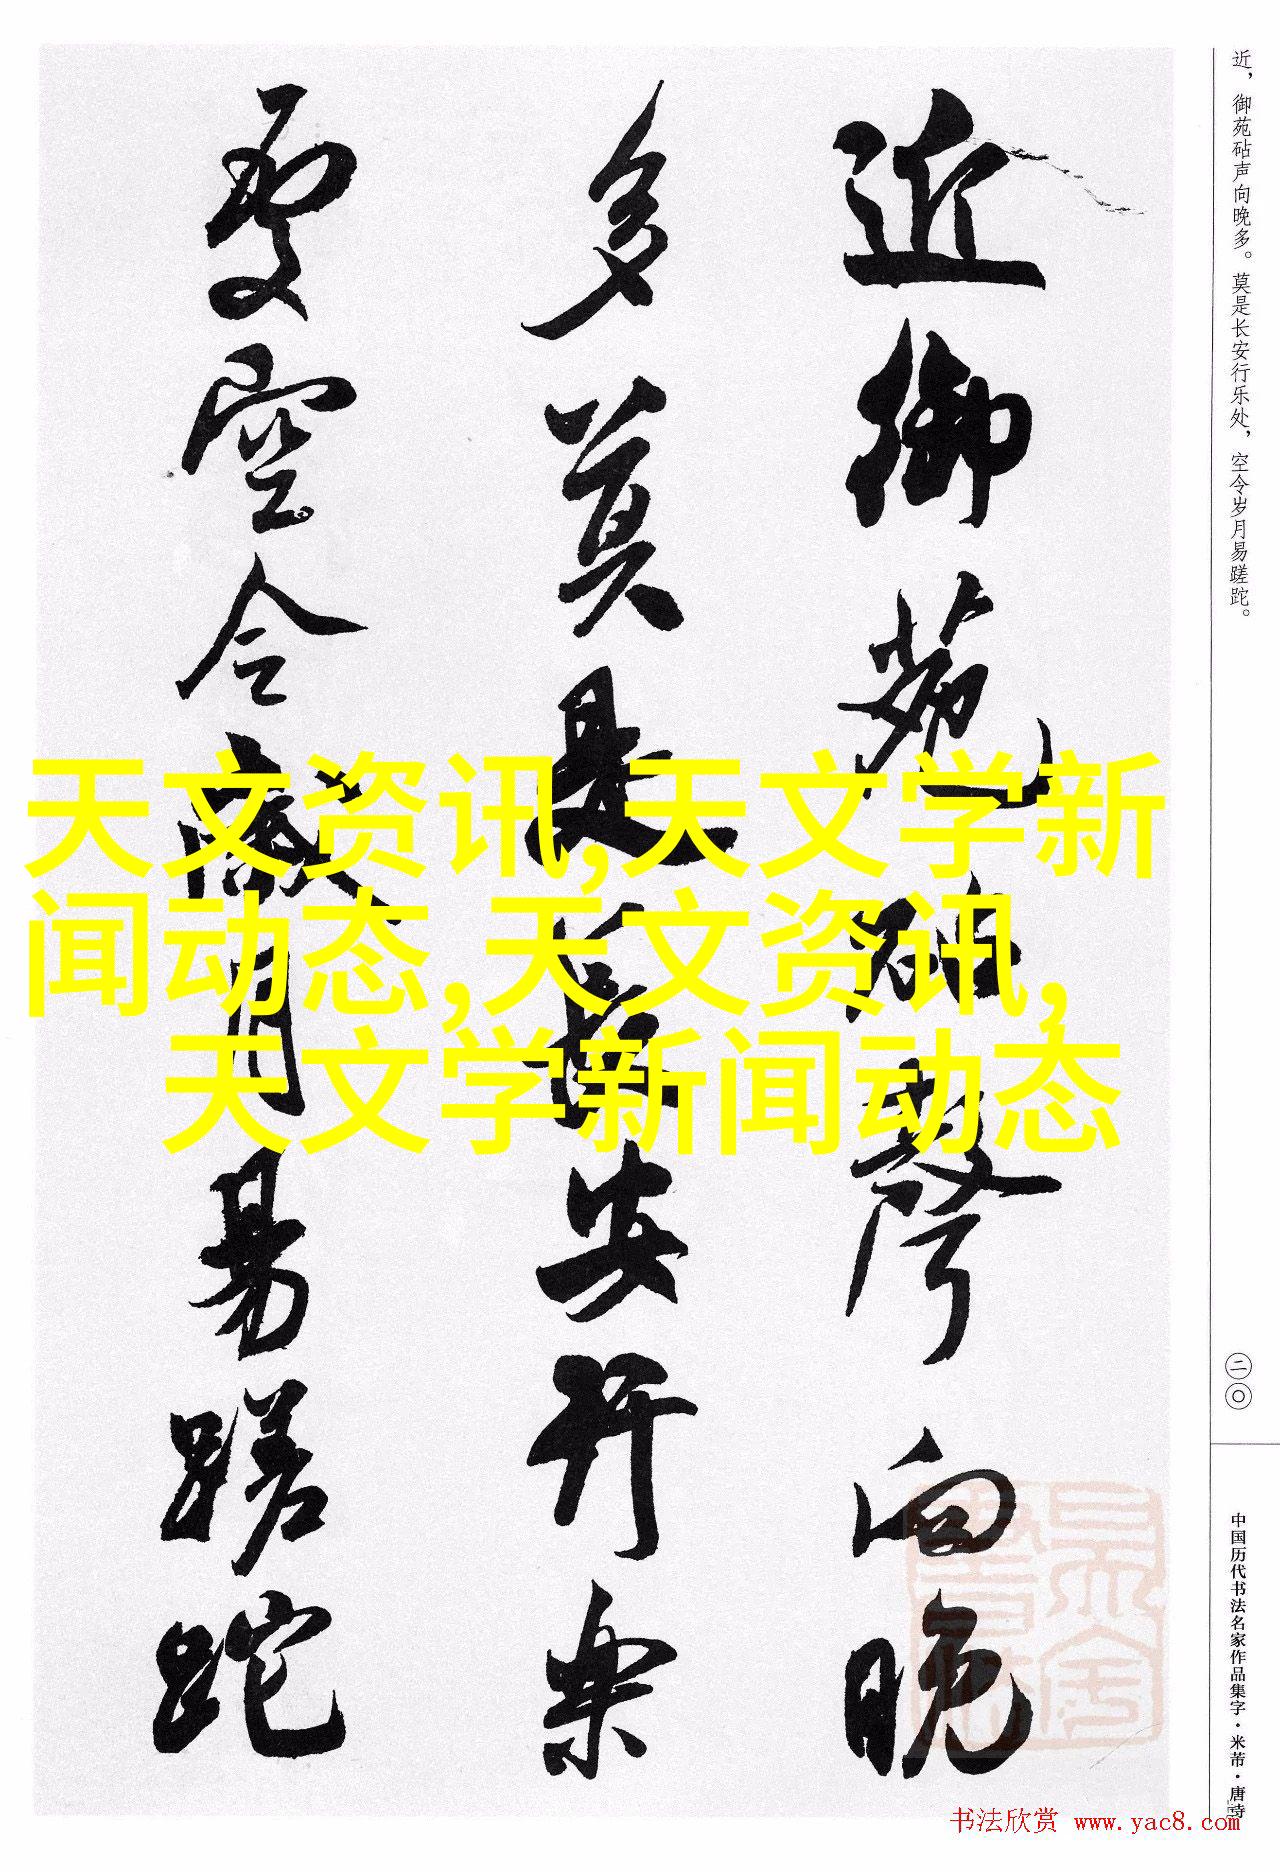 近，御苑砧声向晚多。莫是长安行乐处，空令岁月易蹉跎。
二〇
中国历代书法名家作品集字·米芾·唐诗
近御苑砧聲向晚
多莫是長安行樂
處空令歲月易蹉跎
天文资讯,天文学新
闻动态,天文资讯,
天文学新闻动态
书法欣赏 www.yac8.com